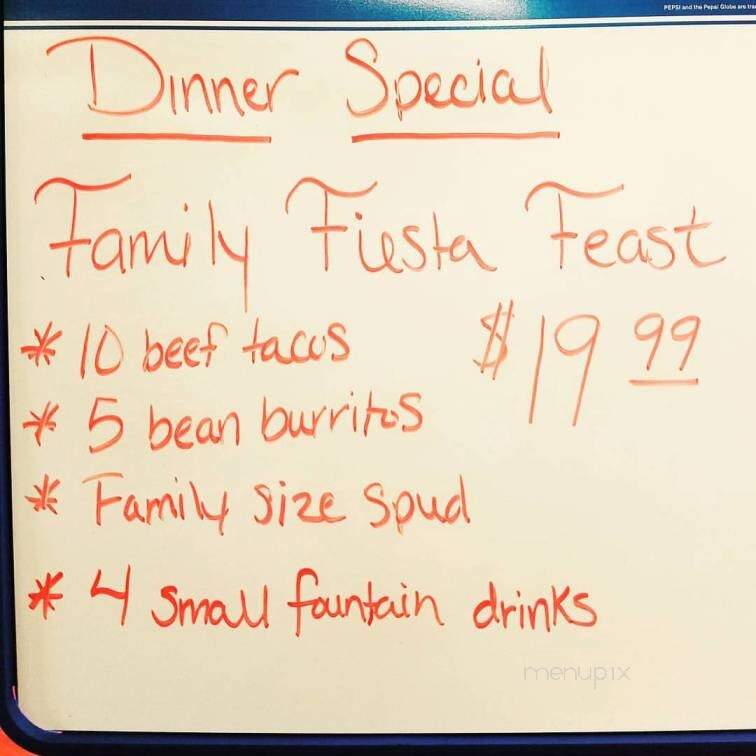 PEPSI and the Pepsi Globe are
Dinner Special
Family Fiesta Feast
* 10 beef tacos
$19 99
* 5 bean burritos
* Family size spud
* 4 small fountain drinks
menupix